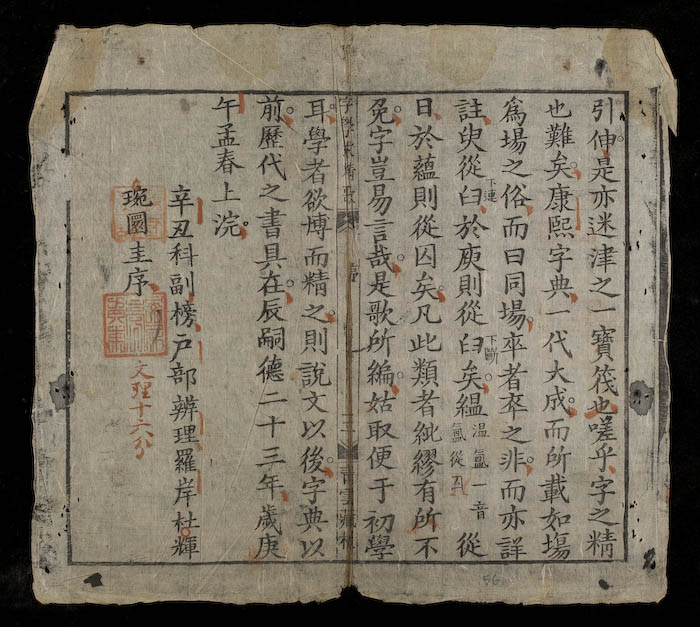 引伸是亦迷津之一寶筏也嗟乎字之精
也難矣康熙字典一代大成而所載如塲
爲場之俗而曰同場卒者卒之非而亦詳
註臾從臼下連於庾則從臼下斷矣縕溫氲一音從
日於蘊則從囚矣凡此類者紕繆有所不
免字豈易言哉是歌所編姑取便于初學
字學求精歌
序
三
耳學者欲博而精之則說文以後字典以
前歷代之書具在辰嗣德二十三年歲庚
午孟春上浣
辛丑科副榜戶部辨理羅岸杜輝
琬圜圭序
文理十六分
56